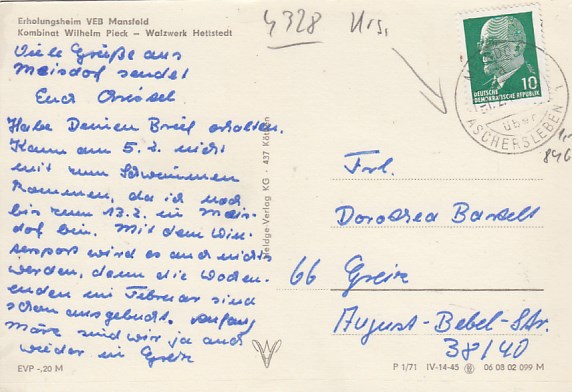 Erholungsheim VEB Mansfeld
Kombinat Wilhelm Pieck — Walzwerk Hettstedt
Viele Grüße aus
Meisdorf sendet
Euch
Habe Deinen Brief erhalten.
Kann am 5.2. nicht
mit zum Schwimmen
kommen, da ich noch
bis zum 13.2. in Meis-
dorf bin. Mit dem Win-
tersport wird es auch nichts
werden, denn die Wochen-
enden im Februar sind
schon ausgebucht. Anfang
März sind wir ja auch
wieder in Greiz
EVP -,20 M
4328
Verlag KG · 437 Köthen
10
DEUTSCHE
DEMOKRATISCHE REPUBLIK
ASCHERSLEBEN
Frl.
Dorothea Bartelt
66 Greiz
August-Bebel-Str.
38/40
P 1/71 IV-14-45 06 08 02 099 M